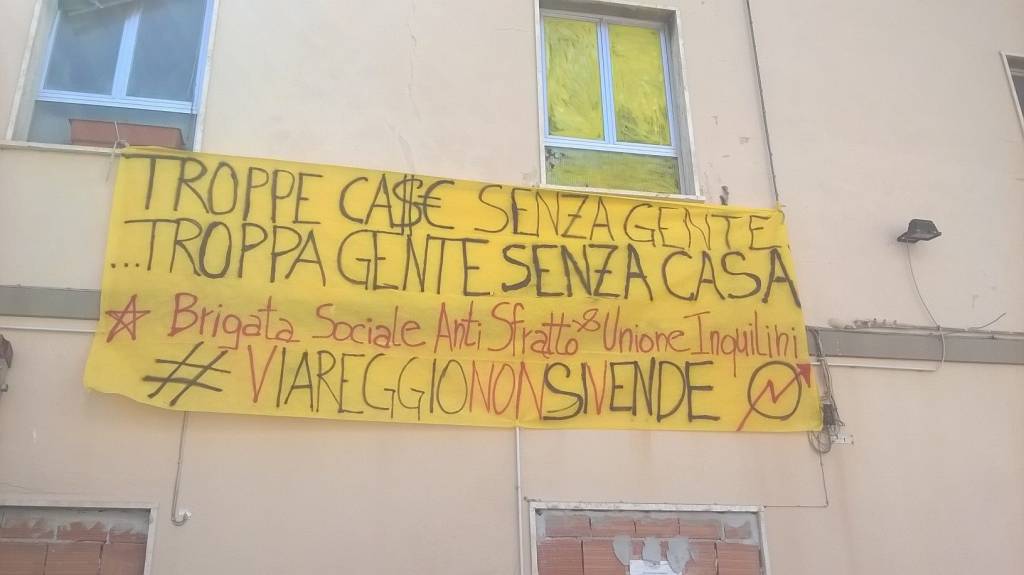 TROPPE CA$€ SENZA GENTE.
...TROPPA GENTE SENZA CASA
Brigata Sociale Anti Sfratto & Unione Inquilini
#VIAREGGIONONSIVENDE